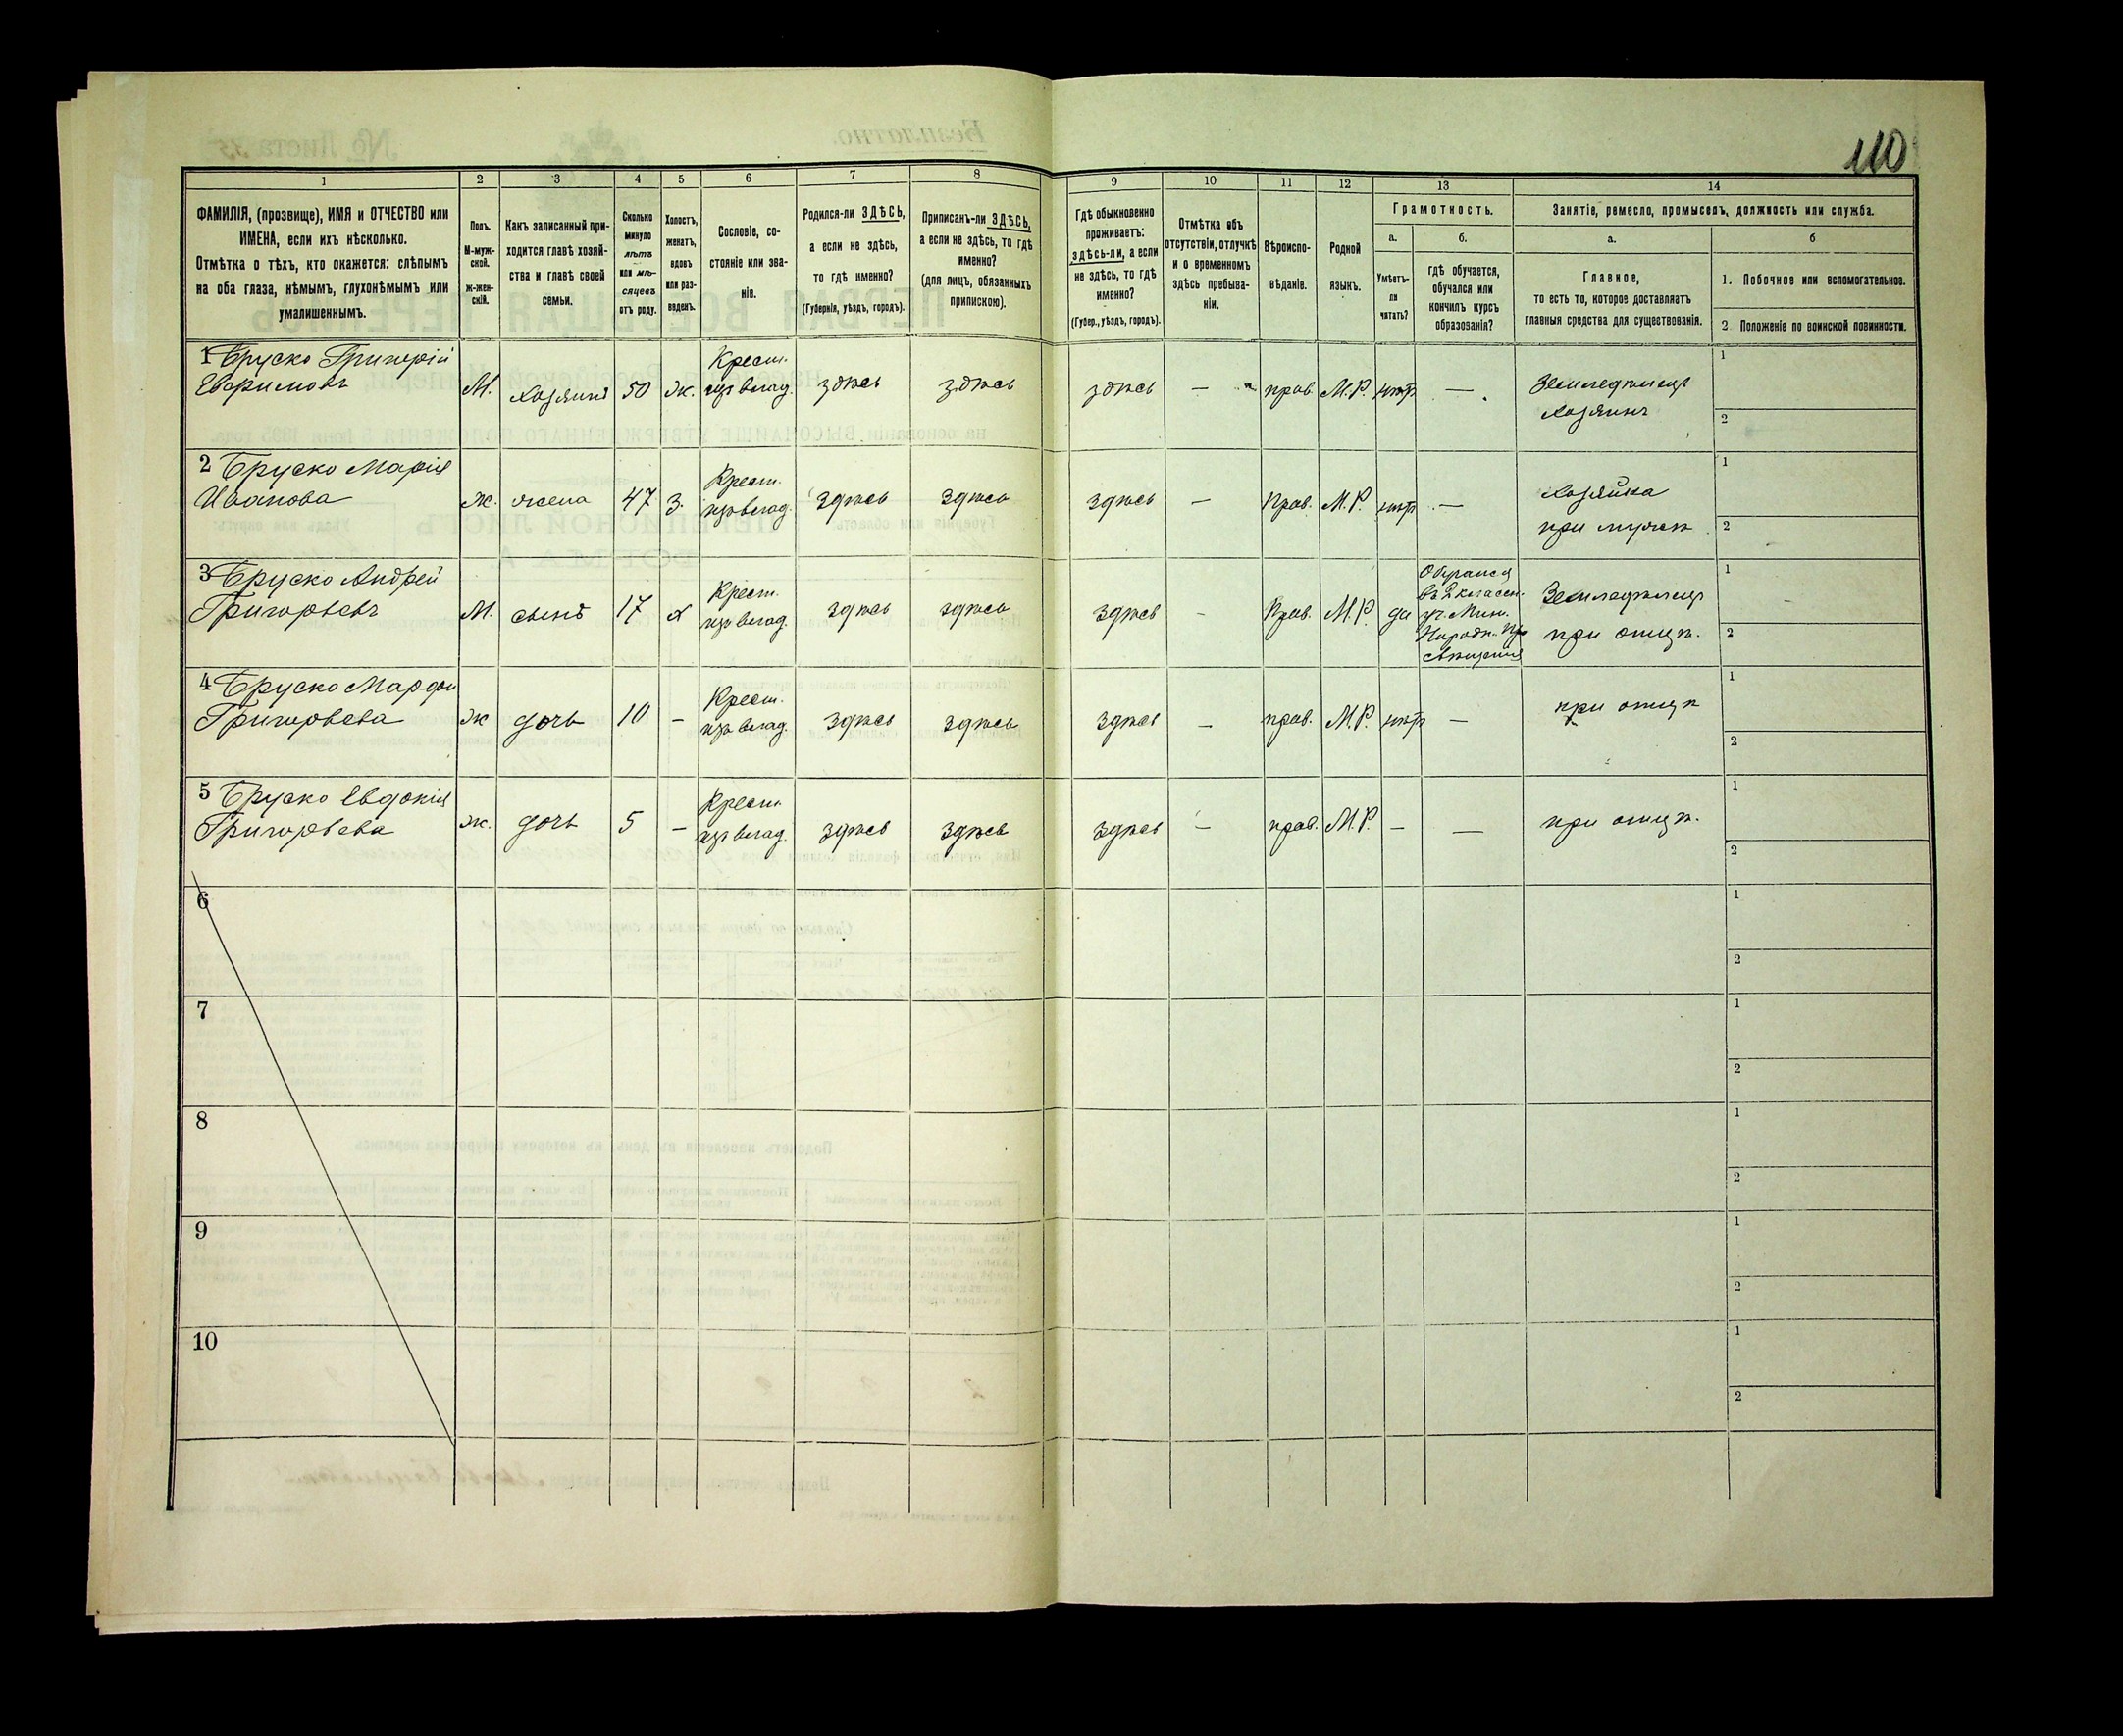 110
1 2 3 4 5 6 7 8 9 10 11 12 13 14
ФАМИЛІЯ, (прозвище), ИМЯ и ОТЧЕСТВО или
ИМЕНА, если ихъ нѣсколько.
Отмѣтка о тѣхъ, кто окажется: слѣпымъ
на оба глаза, нѣмымъ, глухонѣмымъ или
умалишеннымъ.
Полъ.
М-муж-
ской.
Ж-жен-
скій.
Какъ записанный при-
ходится главѣ хозяй-
ства и главѣ своей
семьи.
Сколько
минуло
лѣтъ
или мѣ-
сяцевъ
отъ роду.
Холостъ,
женатъ,
вдовъ
или раз-
веденъ.
Сословіе, со-
стояніе или зва-
ніе.
Родился-ли ЗДѢСЬ,
а если не здѣсь,
то гдѣ именно?
(Губернія, уѣздъ, городъ).
Приписанъ-ли ЗДѢСЬ,
а если не здѣсь, то гдѣ
именно?
(для лицъ, обязанныхъ
припискою).
Гдѣ обыкновенно
проживаетъ:
здѣсь-ли, а если
не здѣсь, то гдѣ
именно?
(Губер., уѣздъ, городъ).
Отмѣтка объ
отсутствіи, отлучкѣ
и о временномъ
здѣсь пребыва-
ніи.
Вѣроиспо-
вѣданіе.
Родной
языкъ.
Грамотность.
а.
Умѣетъ-
ли
читать?
б.
гдѣ обучается,
обучался или
кончилъ курсъ
образованія?
Занятіе, ремесло, промыселъ, должность или служба.
а.
Главное,
то есть то, которое доставляетъ
главныя средства для существованія.
б
1. Побочное или вспомогательное.
2. Положеніе по воинской повинности.
1 Бруско Григорій
Евфимовъ
М.
хозяинъ
50
ж.
Крест.
изъ влад.
здѣсь
здѣсь
здѣсь
—
прав.
М.Р.
нѣтъ
—
Земледѣлецъ
хозяинъ
1
2
2 Бруско Марія
Иванова
ж.
жена
47
З.
Крест.
изъ влад.
здѣсь
здѣсь
здѣсь
—
Прав.
М.Р.
нѣтъ
—
хозяйка
при мужѣ
1
2
3 Бруско Андрей
Григорьевъ
М.
сынъ
17
х
Крест.
изъ влад.
здѣсь
здѣсь
здѣсь
-
Прав.
М.Р.
да
Обучался
въ 2 классн.
уч. Мин.
Народн. Про
свѣщенія
Земледѣлецъ
при отцѣ.
1
2
4 Бруско Марфа
Григорьева
ж
дочь
10
-
Крест.
изъ влад.
здѣсь
здѣсь
здѣсь
—
прав.
М.Р.
нѣтъ
—
при отцѣ
1
2
5 Бруско Евдокія
Григорьева
ж.
дочь
5
-
Крест.
изъ влад.
здѣсь
здѣсь
здѣсь
—
прав.
М.Р.
-
—
при отцѣ.
1
2
6
1
2
7
1
2
8
1
2
9
1
2
10
1
2